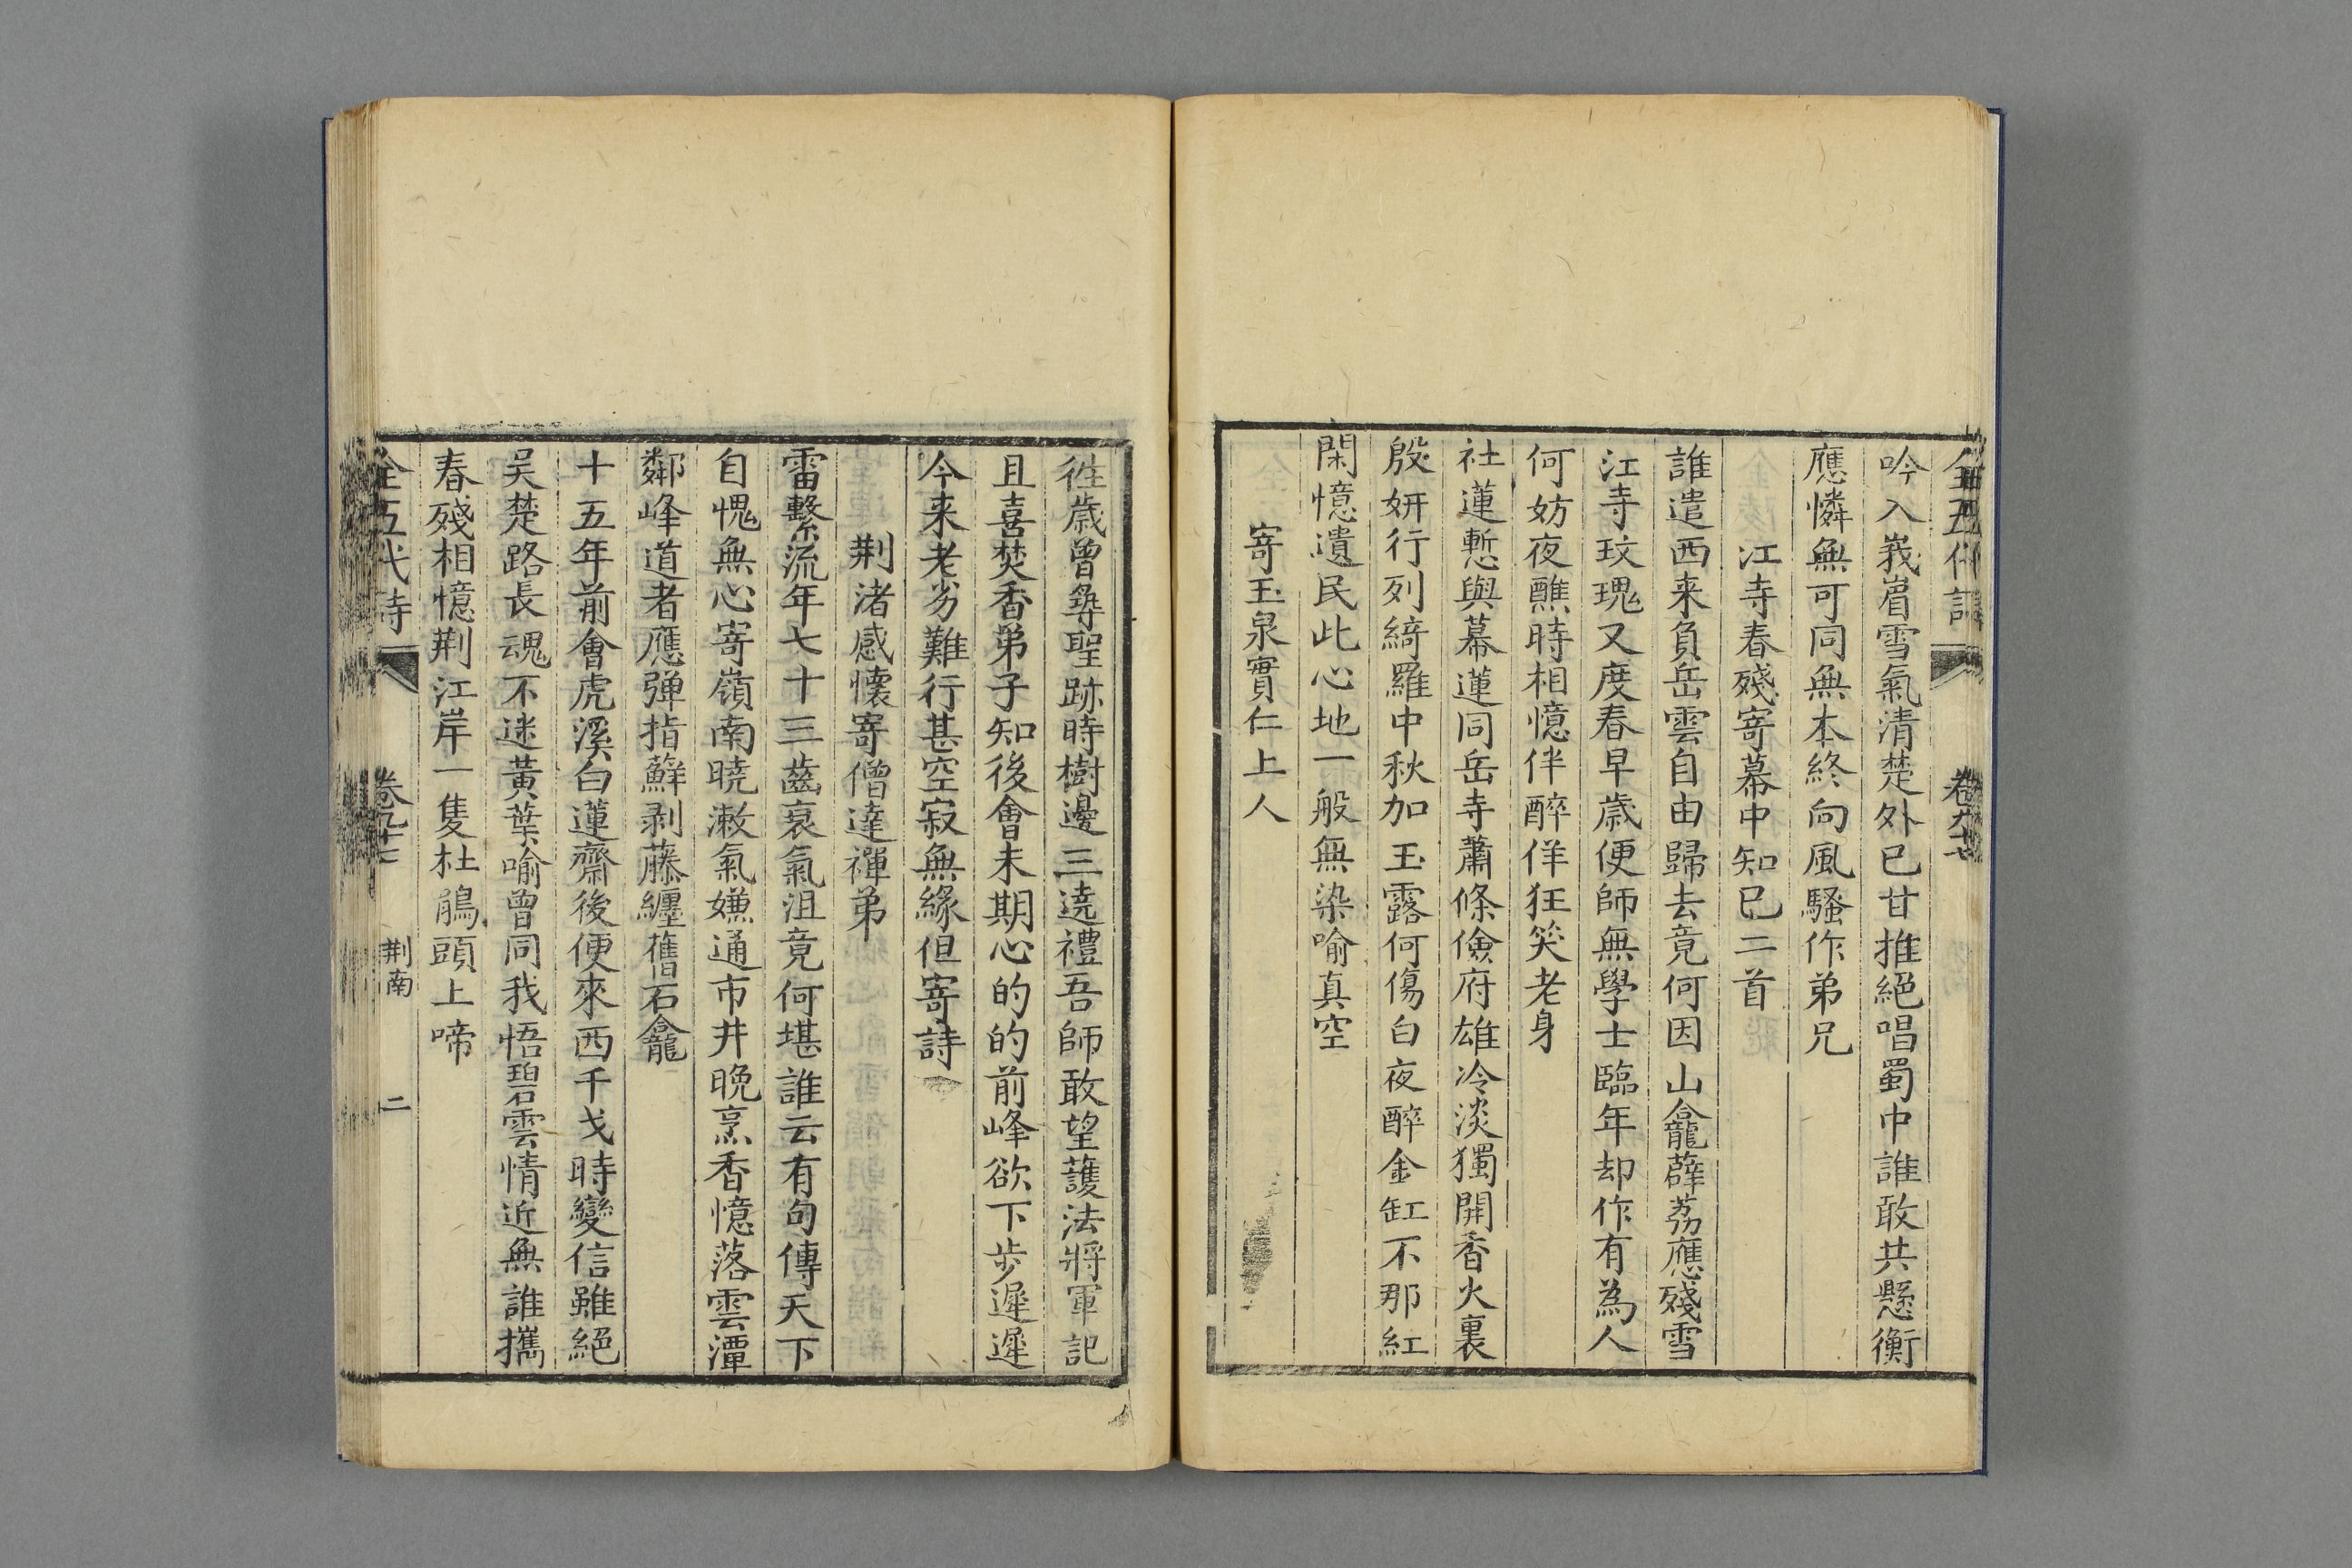 全五代詩 卷九十七
吟入峩眉雪氣清楚外已甘推絕唱蜀中誰敢共懸衡
應憐無可同無本終向風騷作弟兄
江寺春殘寄幕中知已二首
誰遣西来負岳雲自由歸去竟何因山龕薜荔應殘雪
江寺玫瑰又度春早歲便師無學士臨年却作有為人
何妨夜醮時相憶伴醉佯狂笑老身
社蓮慙與幕蓮同岳寺蕭條儉府雄冷淡獨開香火裏
殷妍行列綺羅中秋加玉露何傷白夜醉金缸不那紅
閑憶遺民此心地一般無染喻真空
寄玉泉實仁上人
徃歲曾尋聖跡時樹邊三遶禮吾師敢望護法將軍記
且喜焚香弟子知後會未期心的的前峰欲下步遲遲
今来老劣難行甚空寂無緣但寄詩
荆渚感懷寄僧達禪弟
電繫流年七十三齒衰氣沮竟何堪誰云有句傳天下
自愧無心寄嶺南曉漱氣嫌通市井晚烹香憶落雲潭
鄰峰道者應弹指蘚剥藤纒舊石龕
十五年前會虎溪白蓮齋後便來西千戈時變信雖絕
吴楚路長魂不迷黃葉喻曾同我悟碧雲情近無誰攜
春殘相憶荆江岸一隻杜鵑頭上啼
全五代詩 卷九十七 荆南 二